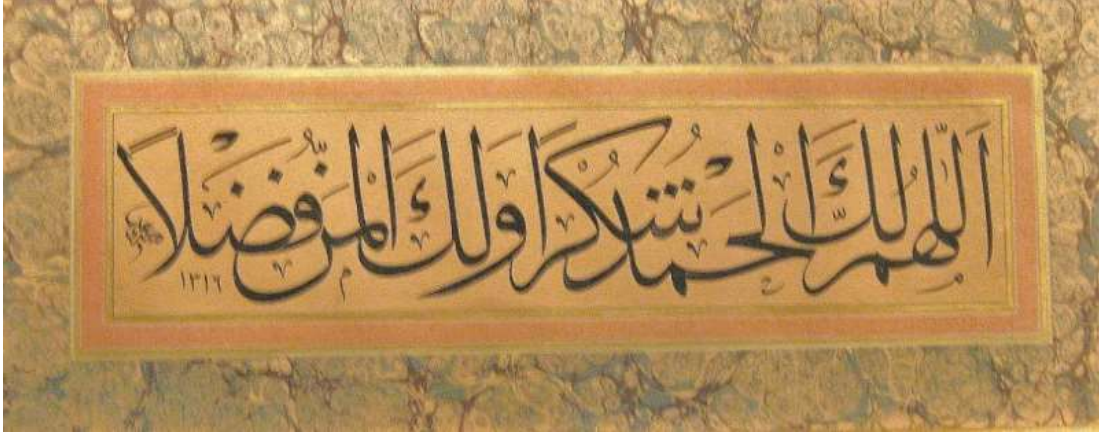 اَللّٰهُمَّ لَكَ الْحَمْدُ شُكْرًا وَلَكَ الْمَنُّ فَضْلًا
١٣١٦